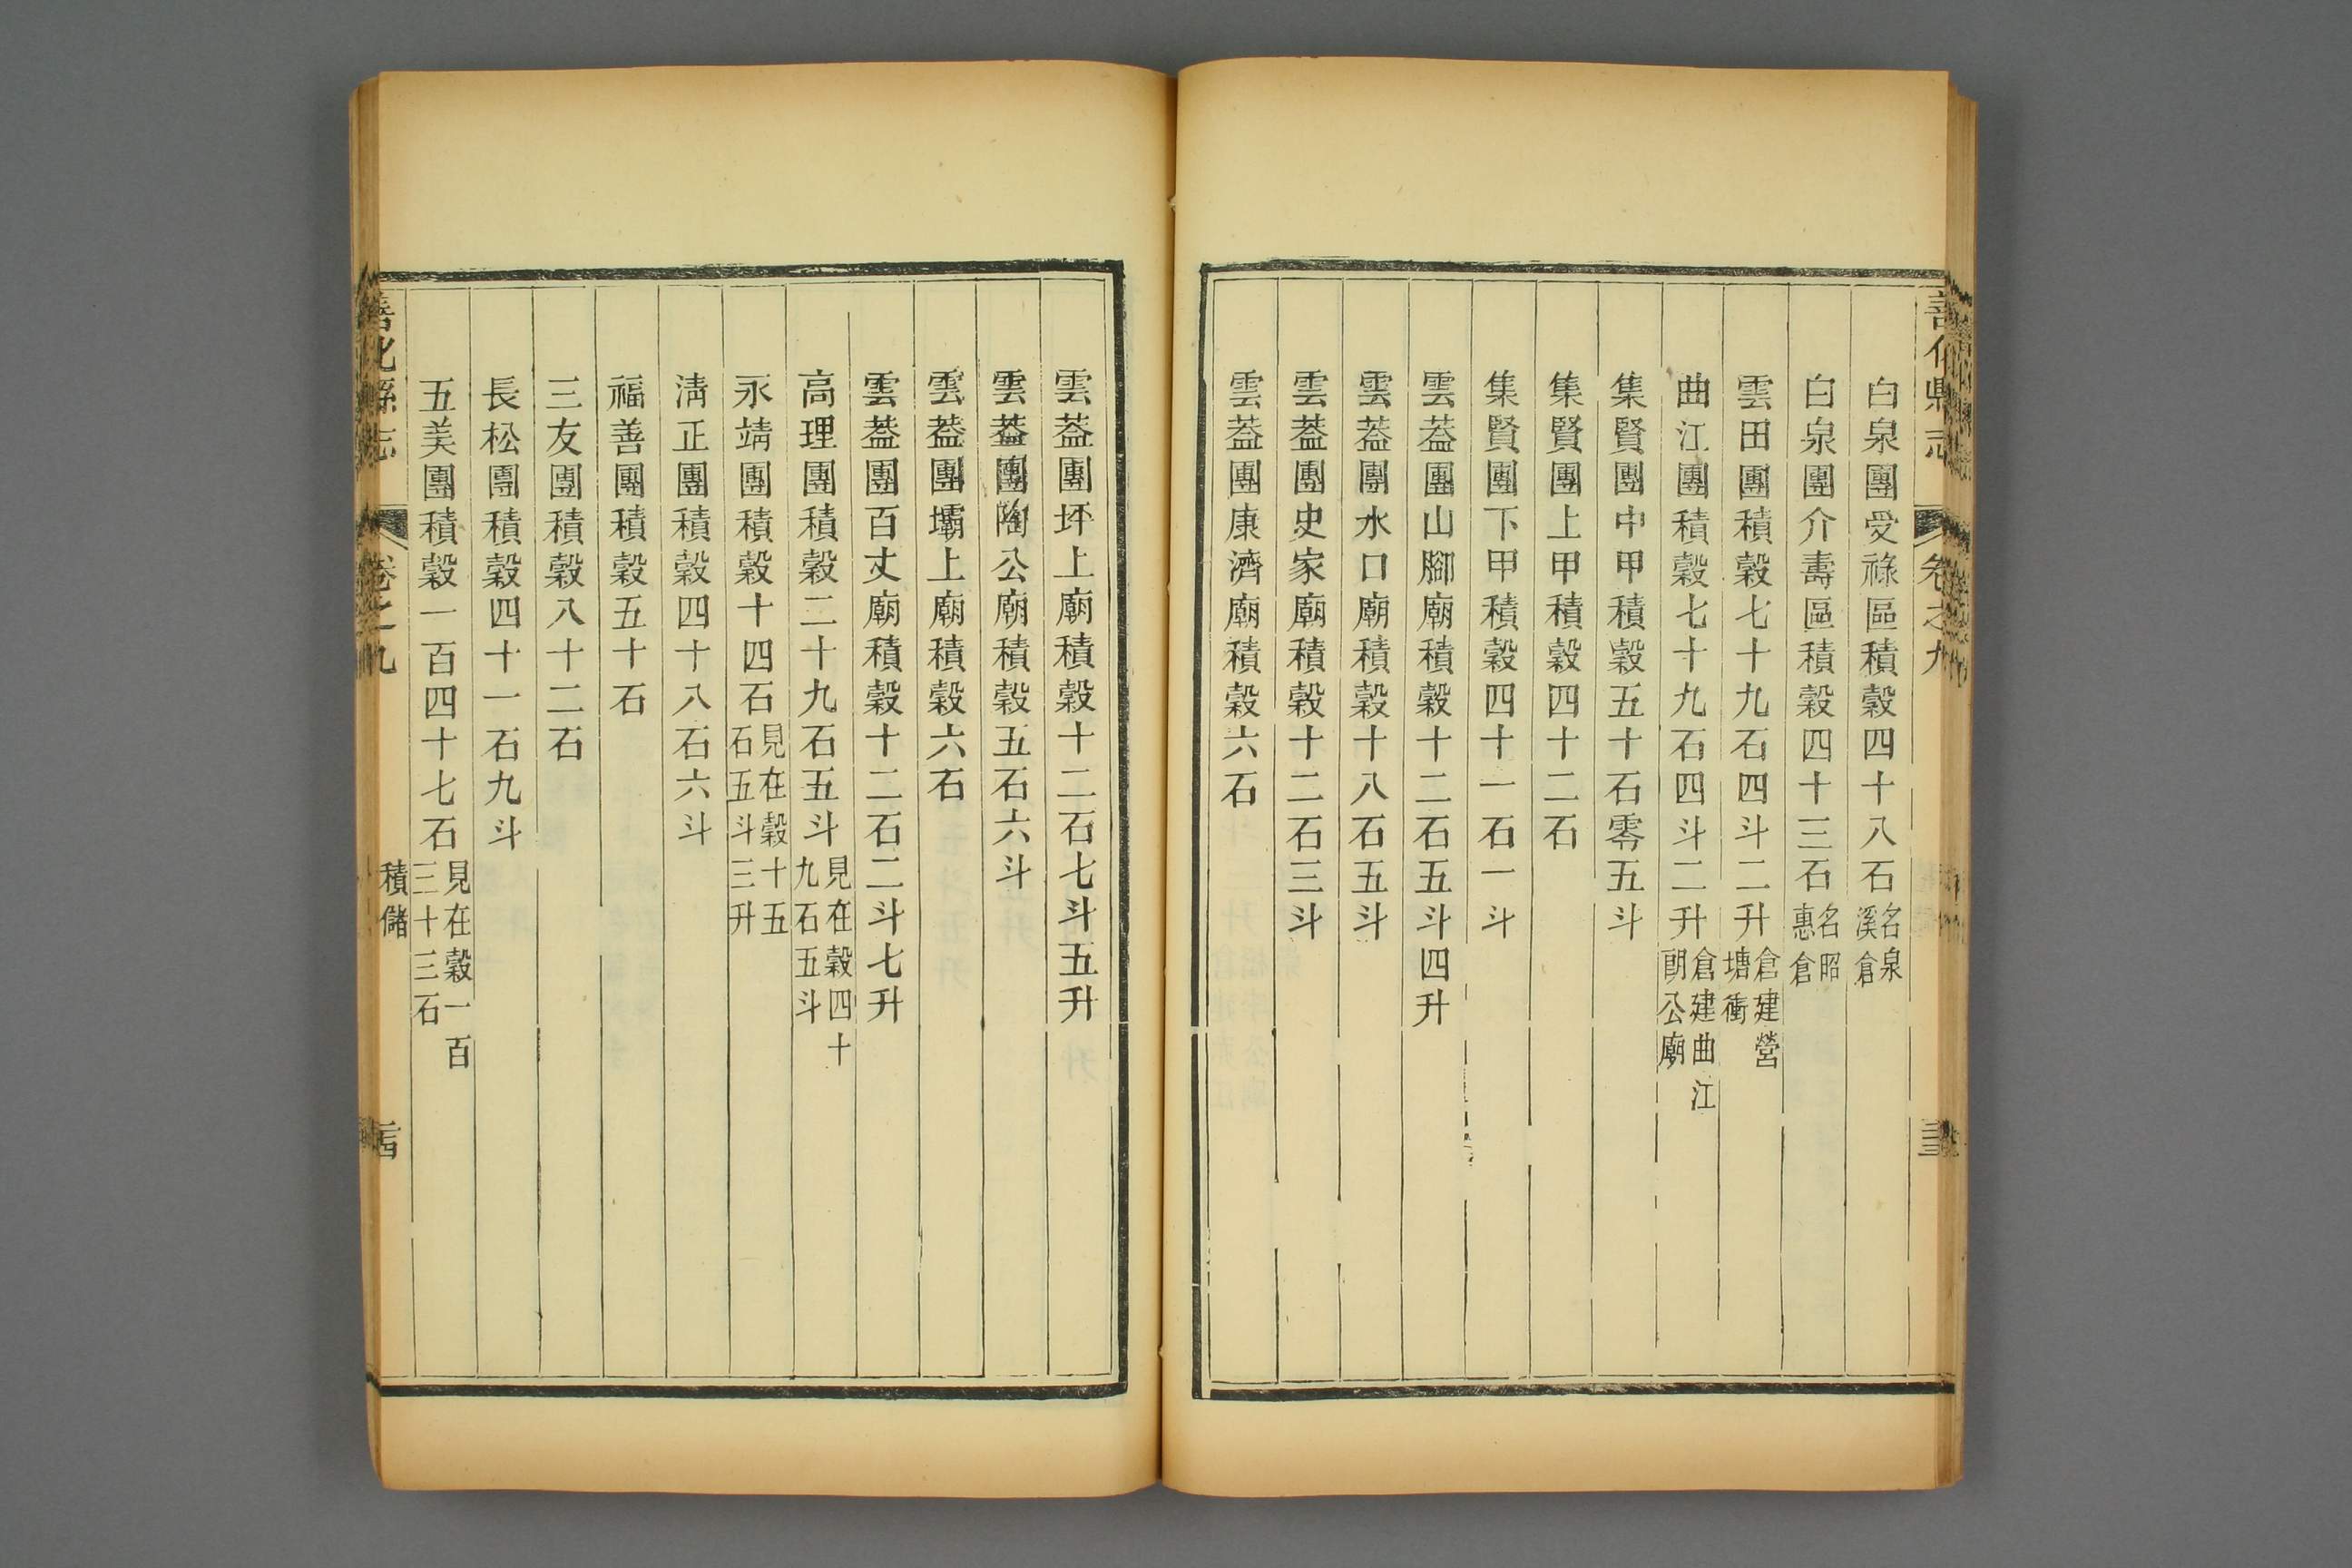 善化縣志
卷之九
白泉團受祿區積穀四十八石名泉溪倉
白泉團介壽區積穀四十三石名昭惠倉
雲田團積穀七十九石四斗二升倉建營塘衝
曲江團積穀七十九石四斗二升倉建曲江朗公廟
集賢團中甲積穀五十石零五斗
集賢團上甲積穀四十二石
集賢團下甲積穀四十一石一斗
雲葢團山腳廟積穀十二石五斗四升
雲葢團水口廟積穀十八石五斗
雲葢團史家廟積穀十二石三斗
雲葢團康濟廟積穀六石
雲葢團坪上廟積穀十二石七斗五升
雲葢團陶公廟積穀五石六斗
雲葢團壩上廟積穀六石
雲葢團百丈廟積穀十二石二斗七升
高理團積穀二十九石五斗見在穀四十九石五斗
永靖團積穀十四石見在穀十五石五斗三升
淸正團積穀四十八石六斗
福善團積穀五十石
三友團積穀八十二石
長松團積穀四十一石九斗
五美團積穀一百四十七石見在穀一百三十三石
善化縣志
卷之九
積儲